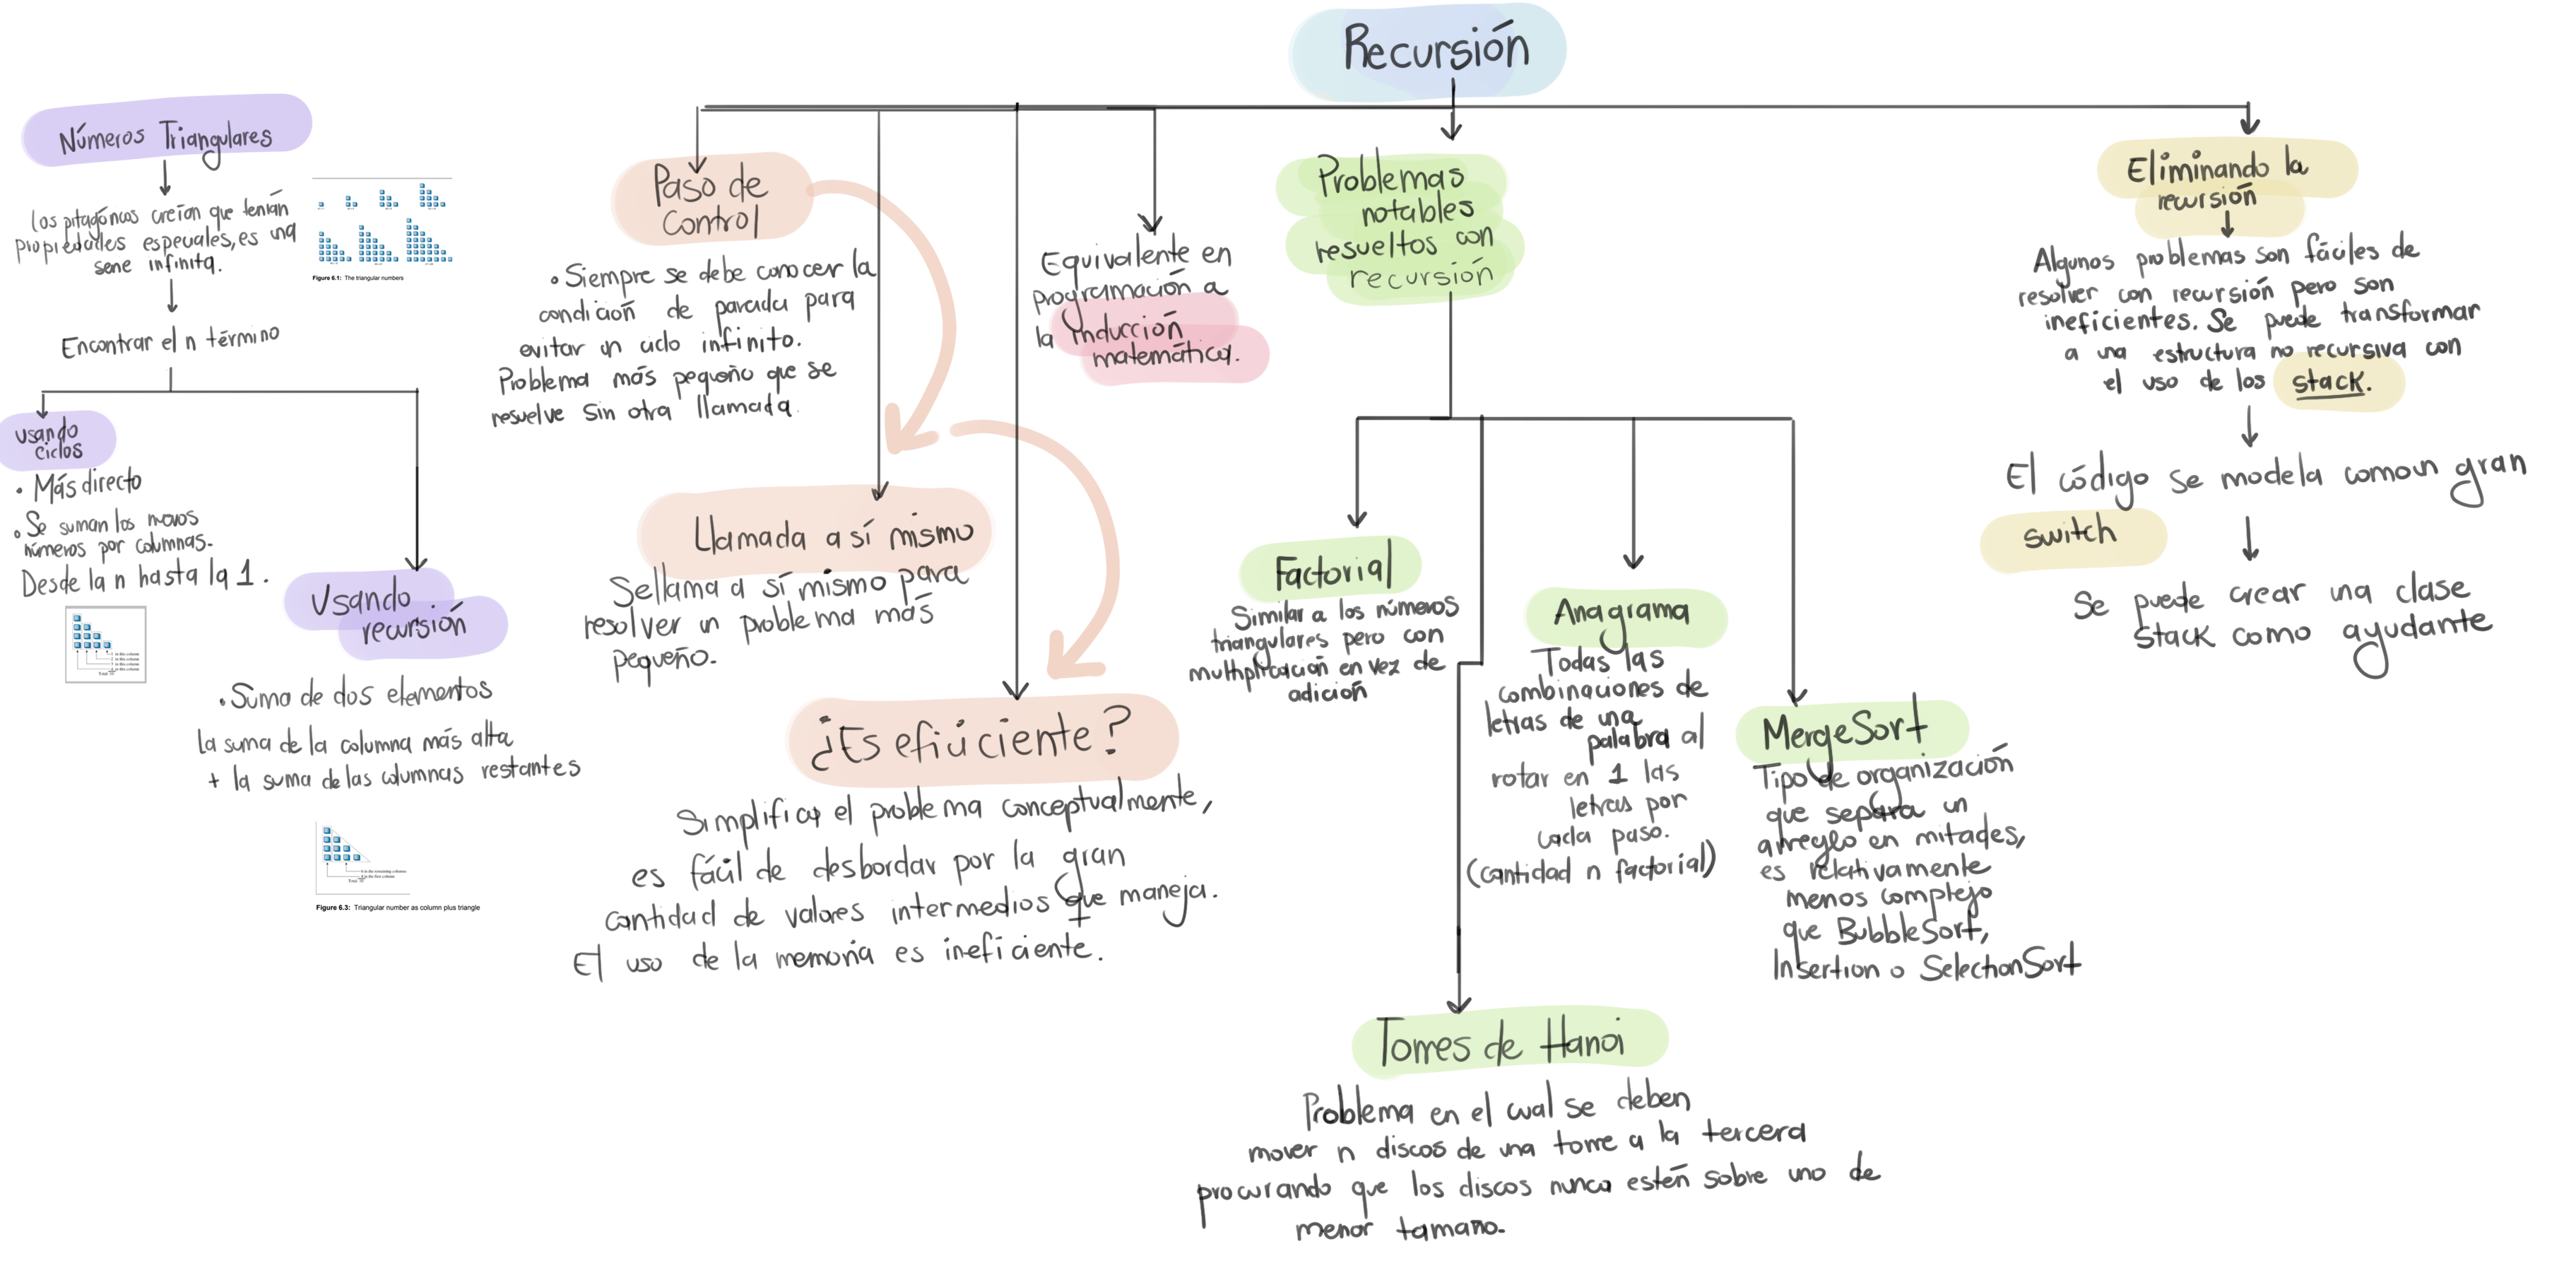 Recursión
Números Triangulares
Los pitagóricos creían que tenían
propiedades especiales, es una
serie infinita.
Figure 6.1: The triangular numbers
Encontrar el n término
Usando
Ciclos
• Más directo
• Se suman los nuevos
números por columnas.
Desde la n hasta la 1.
Usando
recursión
• Suma de dos elementos
La suma de la columna más alta
+ la suma de las columnas restantes
Figure 6.3: Triangular number as column plus triangle
Paso de
control
• Siempre se debe conocer la
condición de parada para
evitar un ciclo infinito.
Problema más pequeño que se
resuelve sin otra llamada.
Llamada a sí mismo
Se llama a sí mismo para
resolver un problema más
pequeño.
¿Es eficiente?
Simplifica el problema conceptualmente,
es fácil de desbordar por la gran
cantidad de valores intermedios que maneja.
+
El uso de la memoria es ineficiente.
Equivalente en
programación a
la inducción
matemática.
Problemas
notables
resueltos con
recursión
Factorial
Similar a los números
triangulares pero con
multiplicación en vez de
adición
Anagrama
Todas las
combinaciones de
letras de una
palabra al
rotar en 1 las
letras por
cada paso.
(cantidad n factorial)
MergeSort
Tipo de organización
que separa un
arreglo en mitades,
es relativamente
menos complejo
que BubbleSort,
Insertion o SelectionSort
Torres de Hanoi
Problema en el cual se deben
mover n discos de una torre a la tercera
procurando que los discos nunca estén sobre uno de
menor tamaño.
Eliminando la
recursión
Algunos problemas son fáciles de
resolver con recursión pero son
ineficientes. Se puede transformar
a una estructura no recursiva con
el uso de los stack.
El código se modela como un gran
switch
Se puede crear una clase
stack como ayudante